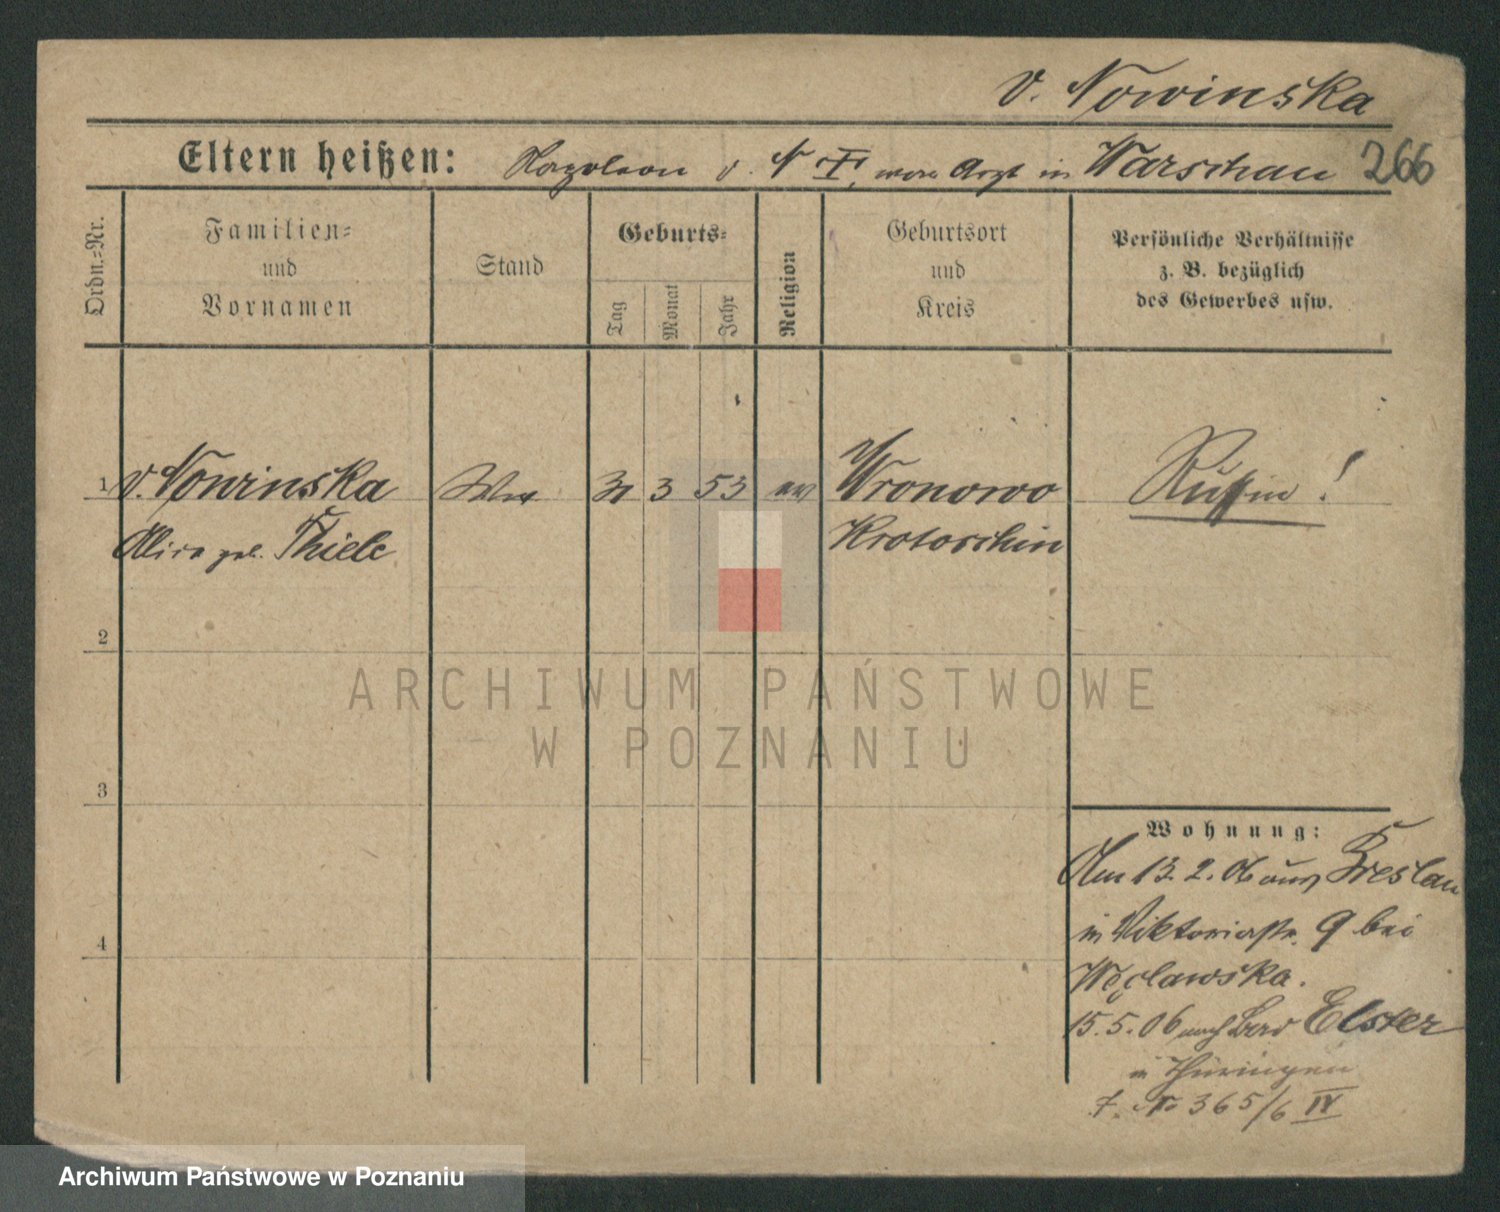 v. Nowinska
266
Eltern heißen: Napoleon v. N †, war Arzt in Warschau
Ordn.-Nr.
Familien-
und
Vornamen
Stand
Geburts-
Tag
Monat
Jahr
Religion
Geburtsort
und
Kreis
Persönliche Verhältnisse
z. B. bezüglich
des Gewerbes usw.
1 v. Nowinska Ww 3 53 ev Wronowo Russin!
geb. Thiele Krotoschin
2
3
4
Wohnung:
Am 13. 2. 06 aus Breslau
in Viktoriastr. 9 bei
Węclawska.
15. 5. 06 nach Bad Elster
in Thüringen
No 365/6 IV
ARCHIWUM PAŃSTWOWE
W POZNANIU
Archiwum Państwowe w Poznaniu